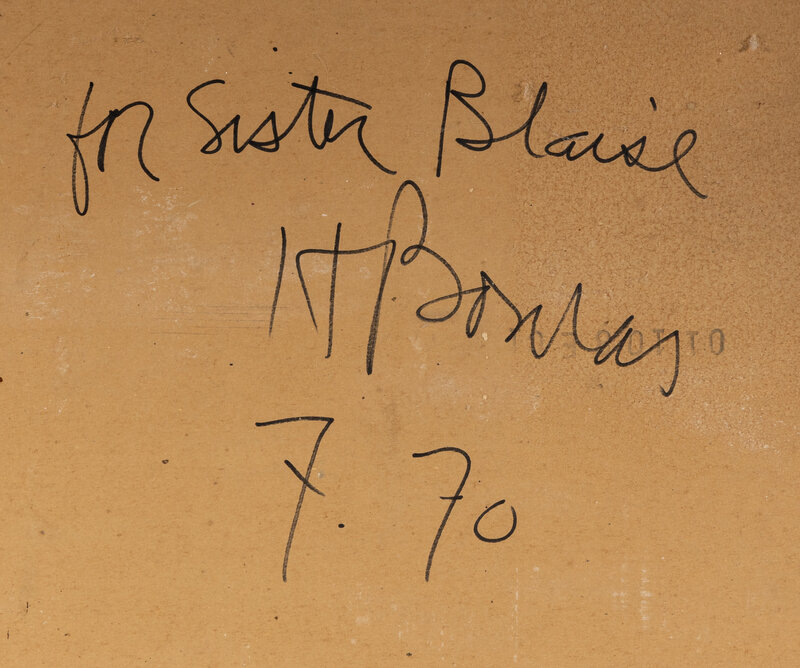 for Sister Blaise
H Bouras
7. 70